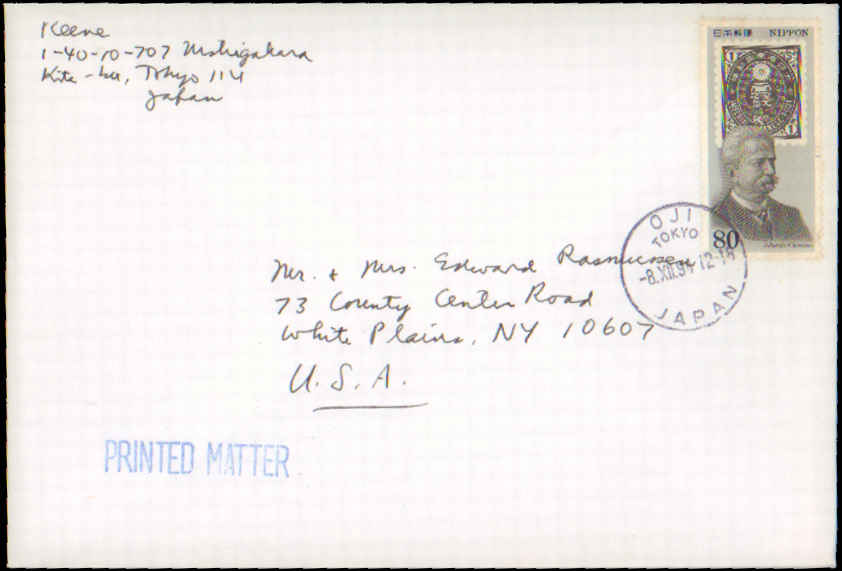 Keene
1-40-10-707 Nishigahara
Kita-ku, Tokyo 114
Japan
日本郵便 NIPPON
80
OJI
TOKYO
-8.XII.94 12-18
JAPAN
Mr. + Mrs. Edward Rasmussen
73 County Center Road
White Plains, NY 10607
U.S.A.
PRINTED MATTER